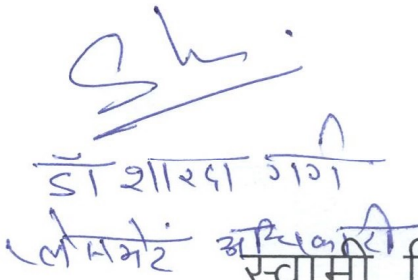 डॉ शारदा गर्ग
प्लेसमेंट अधिकारी
स्वामी